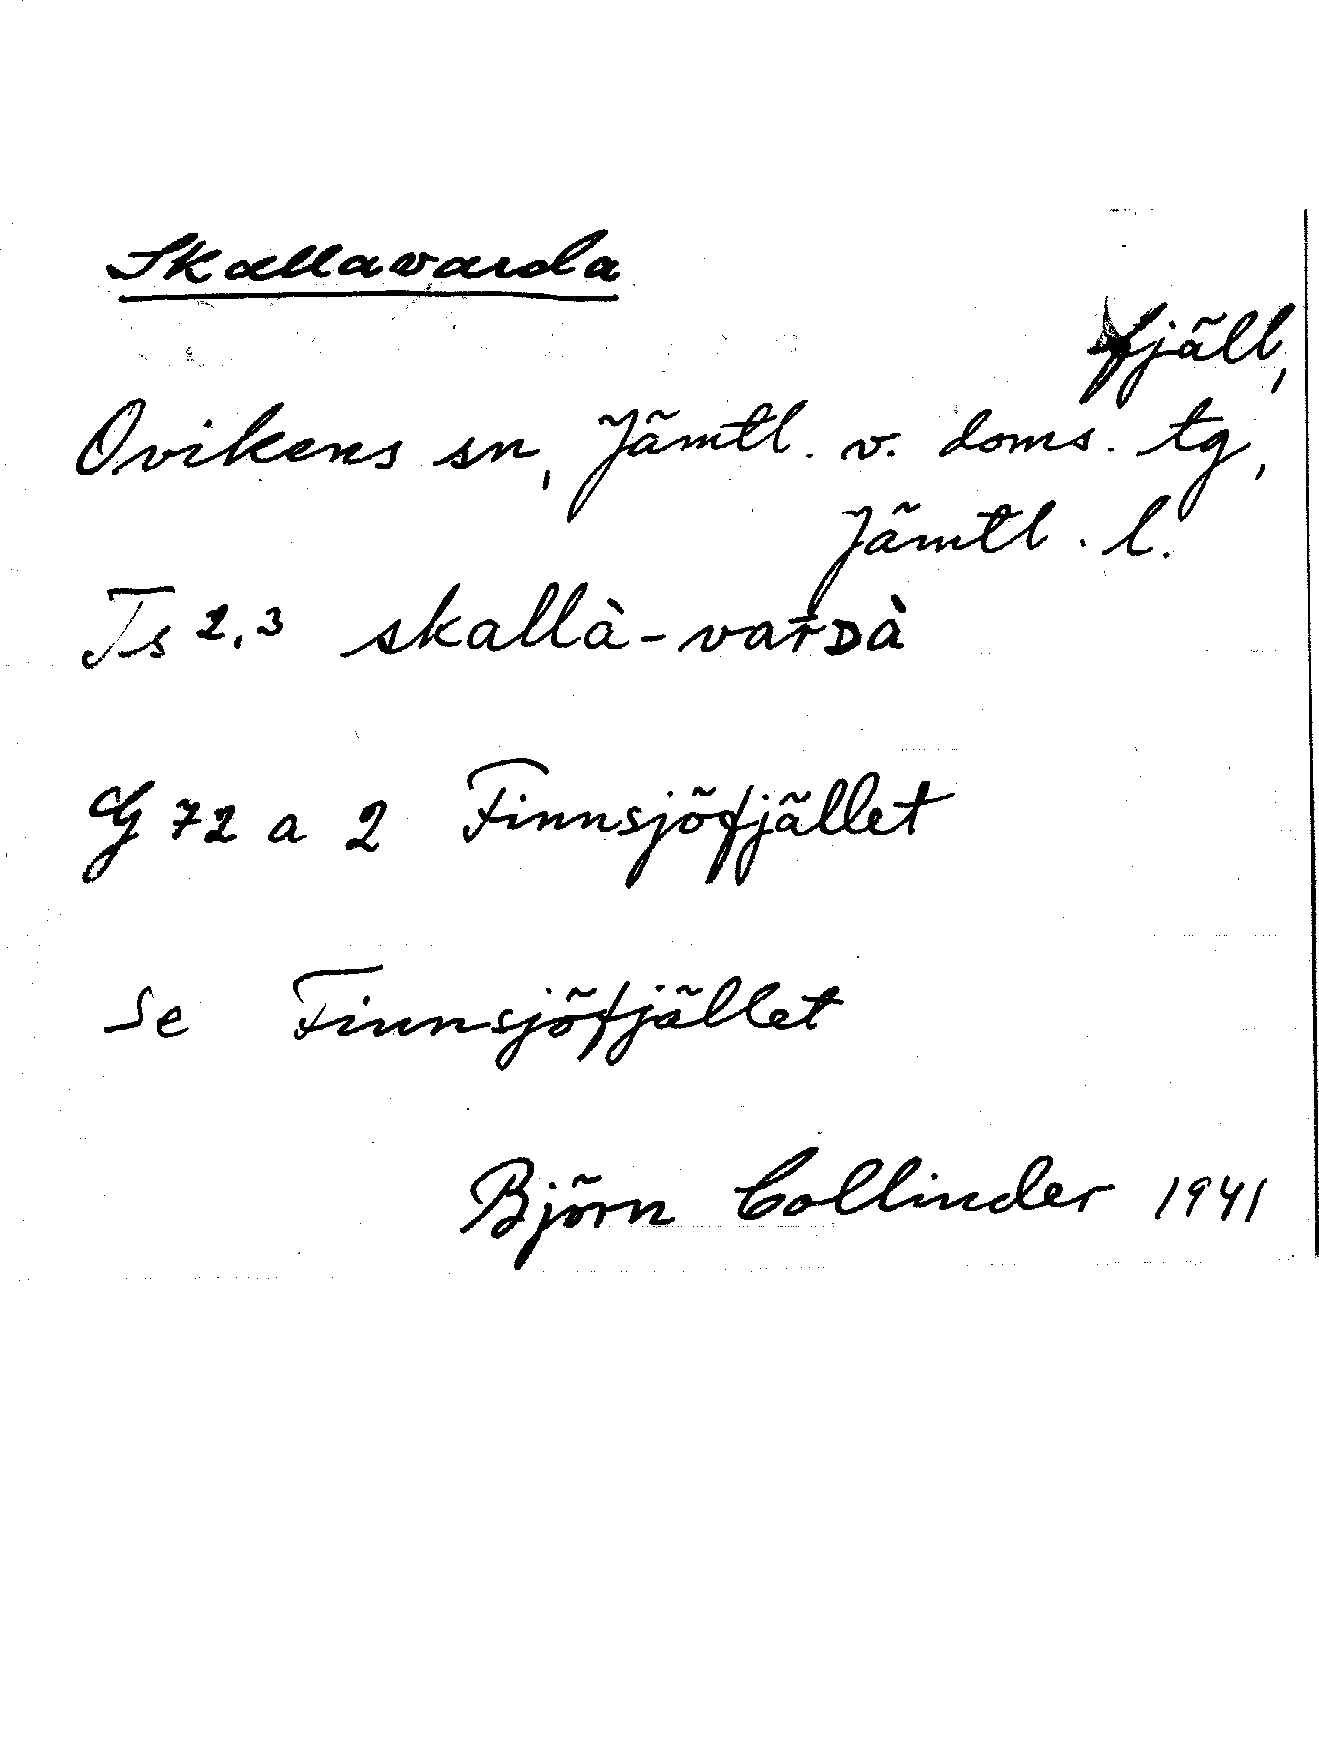 Skallavarda
fjäll,
Ovikens sn, Jämtl. v. doms. tg,
Jämtl. l.
Ts 2,3 skallà-vaṙᴅà
G 72 a 2 Finnsjöfjället
Se Finnsjöfjället
Björn Collinder 1941